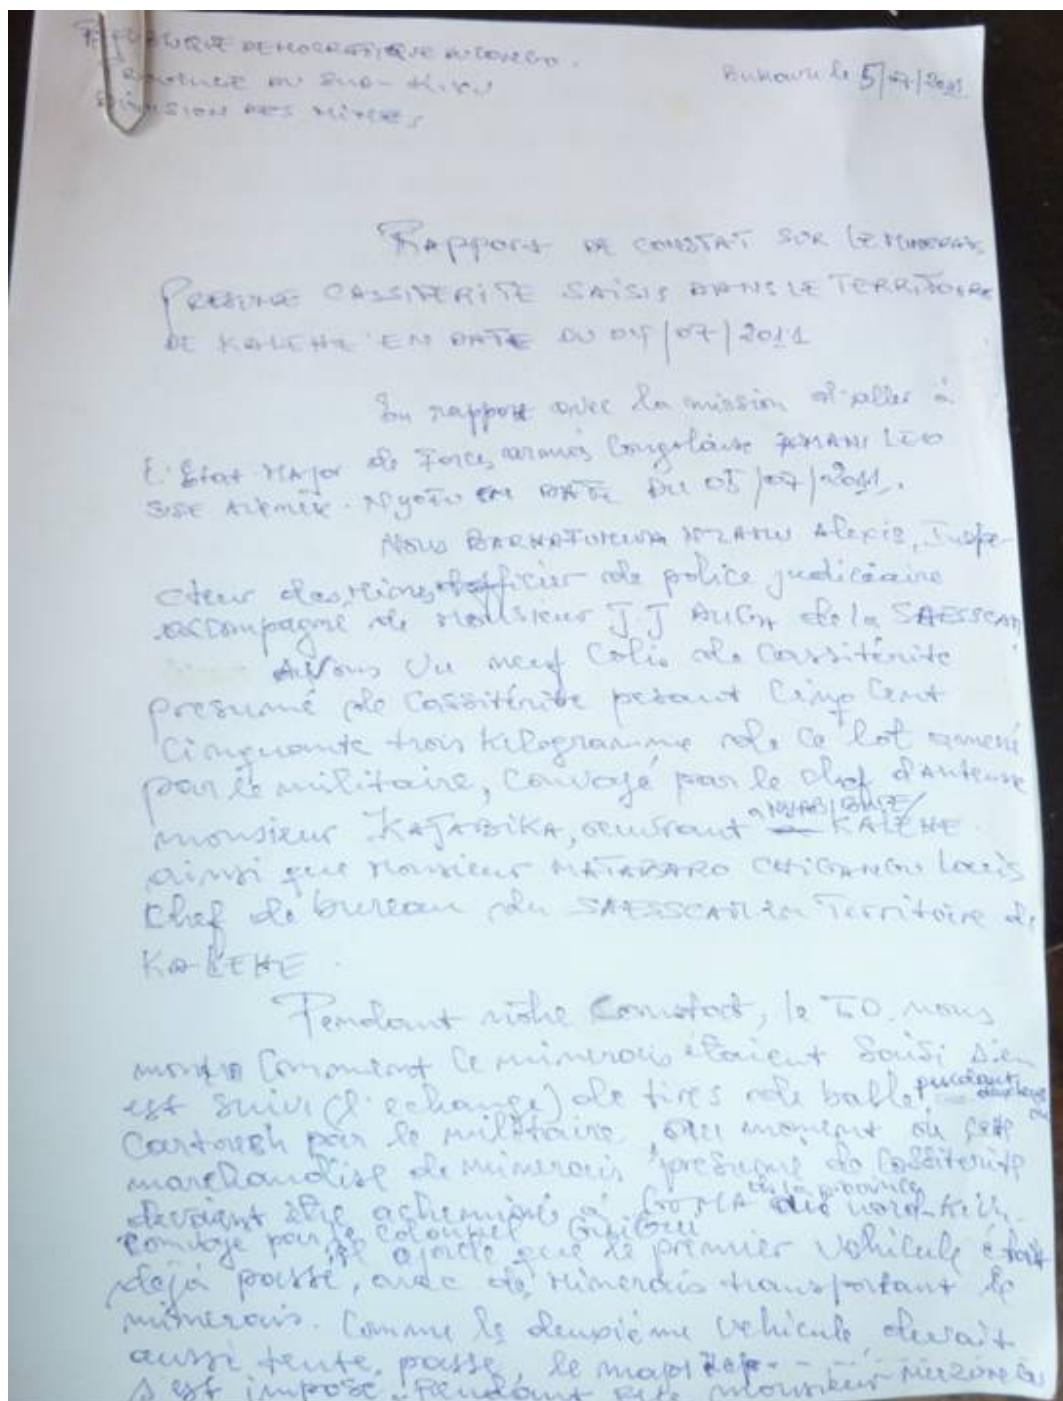 REPUBLIQUE DEMOCRATIQUE DU CONGO.
PROVINCE DU SUD-KIVU
DIVISION DES MINES
Bukavu le 5/07/2011
RAPPORT DE CONSTAT SUR LE MINERAIS
PRESUME CASSITERITE SAISIS DANS LE TERRITOIRE
DE KALEHE EN DATE DU 04/07/2011
En rapport avec la mission d'aller à
l'Etat Major de Forces armés Congolaise AMANI LEO
SISE NYOFU EN DATE DU 05/07/2011.
Nous Alexis, Inspe-
cteur des Mines officier de police judiciaire
accompagné de Monsieur J.J de la SAESSCAM
Avons vu neuf Colis de Cassitérite
presumé de Cassitérite pesant Cinq Cent
Cinquante trois Kilogramme de ce lot amené
par le militaire, Convoyé par le chef d'antenne
monsieur KATABIKA, oeuvrant à NYABIBWE/ KALEHE
ainsi que Monsieur MATABARO Louis
Chef de bureau du SAESSCAM en Territoire de
KALEHE.
Pendant nôtre Constat, le T.O. nous
montre Comment Ce minerais étaient Saisi
est Suivi (l'échange) de tires de balle pendant
Cartouch par le militaire, au moment où cette
marchandise de minerais presumé de Cassiterite
devaient être acheminé à GOMA de la province du Nord-Kivu
Convoyé par le Colonnel
il ajoute que le premier vehicule était
déjà passé, avec de minerais transportant le
minerais. Comme le deuxième vehicule devait
aussi tente, passé, le major
s'est imposé. Pendant monsieur